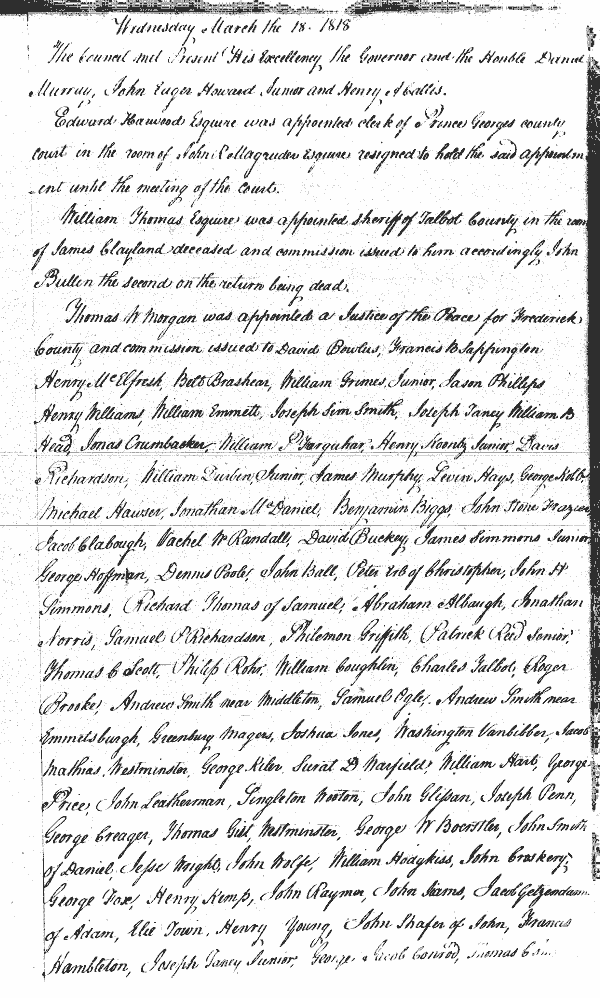 Wednesday March the 18. 1818
The Council met Present His Excellency the Governor and the Honble Daniel
Murray, John Eager Howard Junior and Henry
Edward Harwood Esquire was appointed clerk of Prince Georges county
court in the room of John Esquire resigned to hold the said appointm
-ent until the meeting of the court.
William Thomas Esquire was appointed sheriff of Talbot County in the room
of James Clayland deceased and commission issued to him accordingly John
Bullen the second on the return being dead.
Thomas W Morgan was appointed a Justice of the Peace for Frederick
County and commission issued to David Bowlus, Francis B Sappington
Henry McElfresh, Belt Brashear, William Grimes, Junior, Jason Phillips
Henry Williams, William Emmett, Joseph Sim Smith, Joseph Taney William B
Head, Jonas Crumbacker, William P Farquhar, Henry Koontz Junior, Davis
Richardson, William Durbin, Junior, James Murphy, Levin Hays, George Kolb,
Michael Hawser, Jonathan McDaniel, Benjamin Biggs, John Stone Frazier
Jacob Clabough, Vachel W Randall, David Buckey, James Simmons Junior
George Hoffman, Dennis Poole, John Ball, Peter Erb of Christopher, John H
Simmons, Richard Thomas of Samuel, Abraham Albaugh, Jonathan
Norris, Samuel P Richardson, Philemon Griffith, Patrick Reid Senior,
Thomas C Scott, Philip Rohr, William Coughlin, Charles Talbot, Roger
Brooke, Andrew Smith near Middleton, Samuel Ogle, Andrew Smith near
Emmetsburgh, Greenbury Magers, Joshua Jones, Washington Vanbibber, Jacob
Mathias, Westminster, George Kiler, Surat D Warfield, William Hart, George
Price, John Leatherman, Singleton Wooton, John Glissan, Joseph Penn,
George Creager, Thomas Gist, Westminster, George W Boerstler, John Smith
of Daniel, Jesse Wright, John Wolfe, William Hodgkiss, John Croskery,
George Kemp, John Raymer, John Iiams, Jacob Getzendanner
of Adam, Elie Town, Henry Young, John Shafer of John, Francis
Hambleton, Joseph Taney Junior, George Jacob Conrod, Thomas